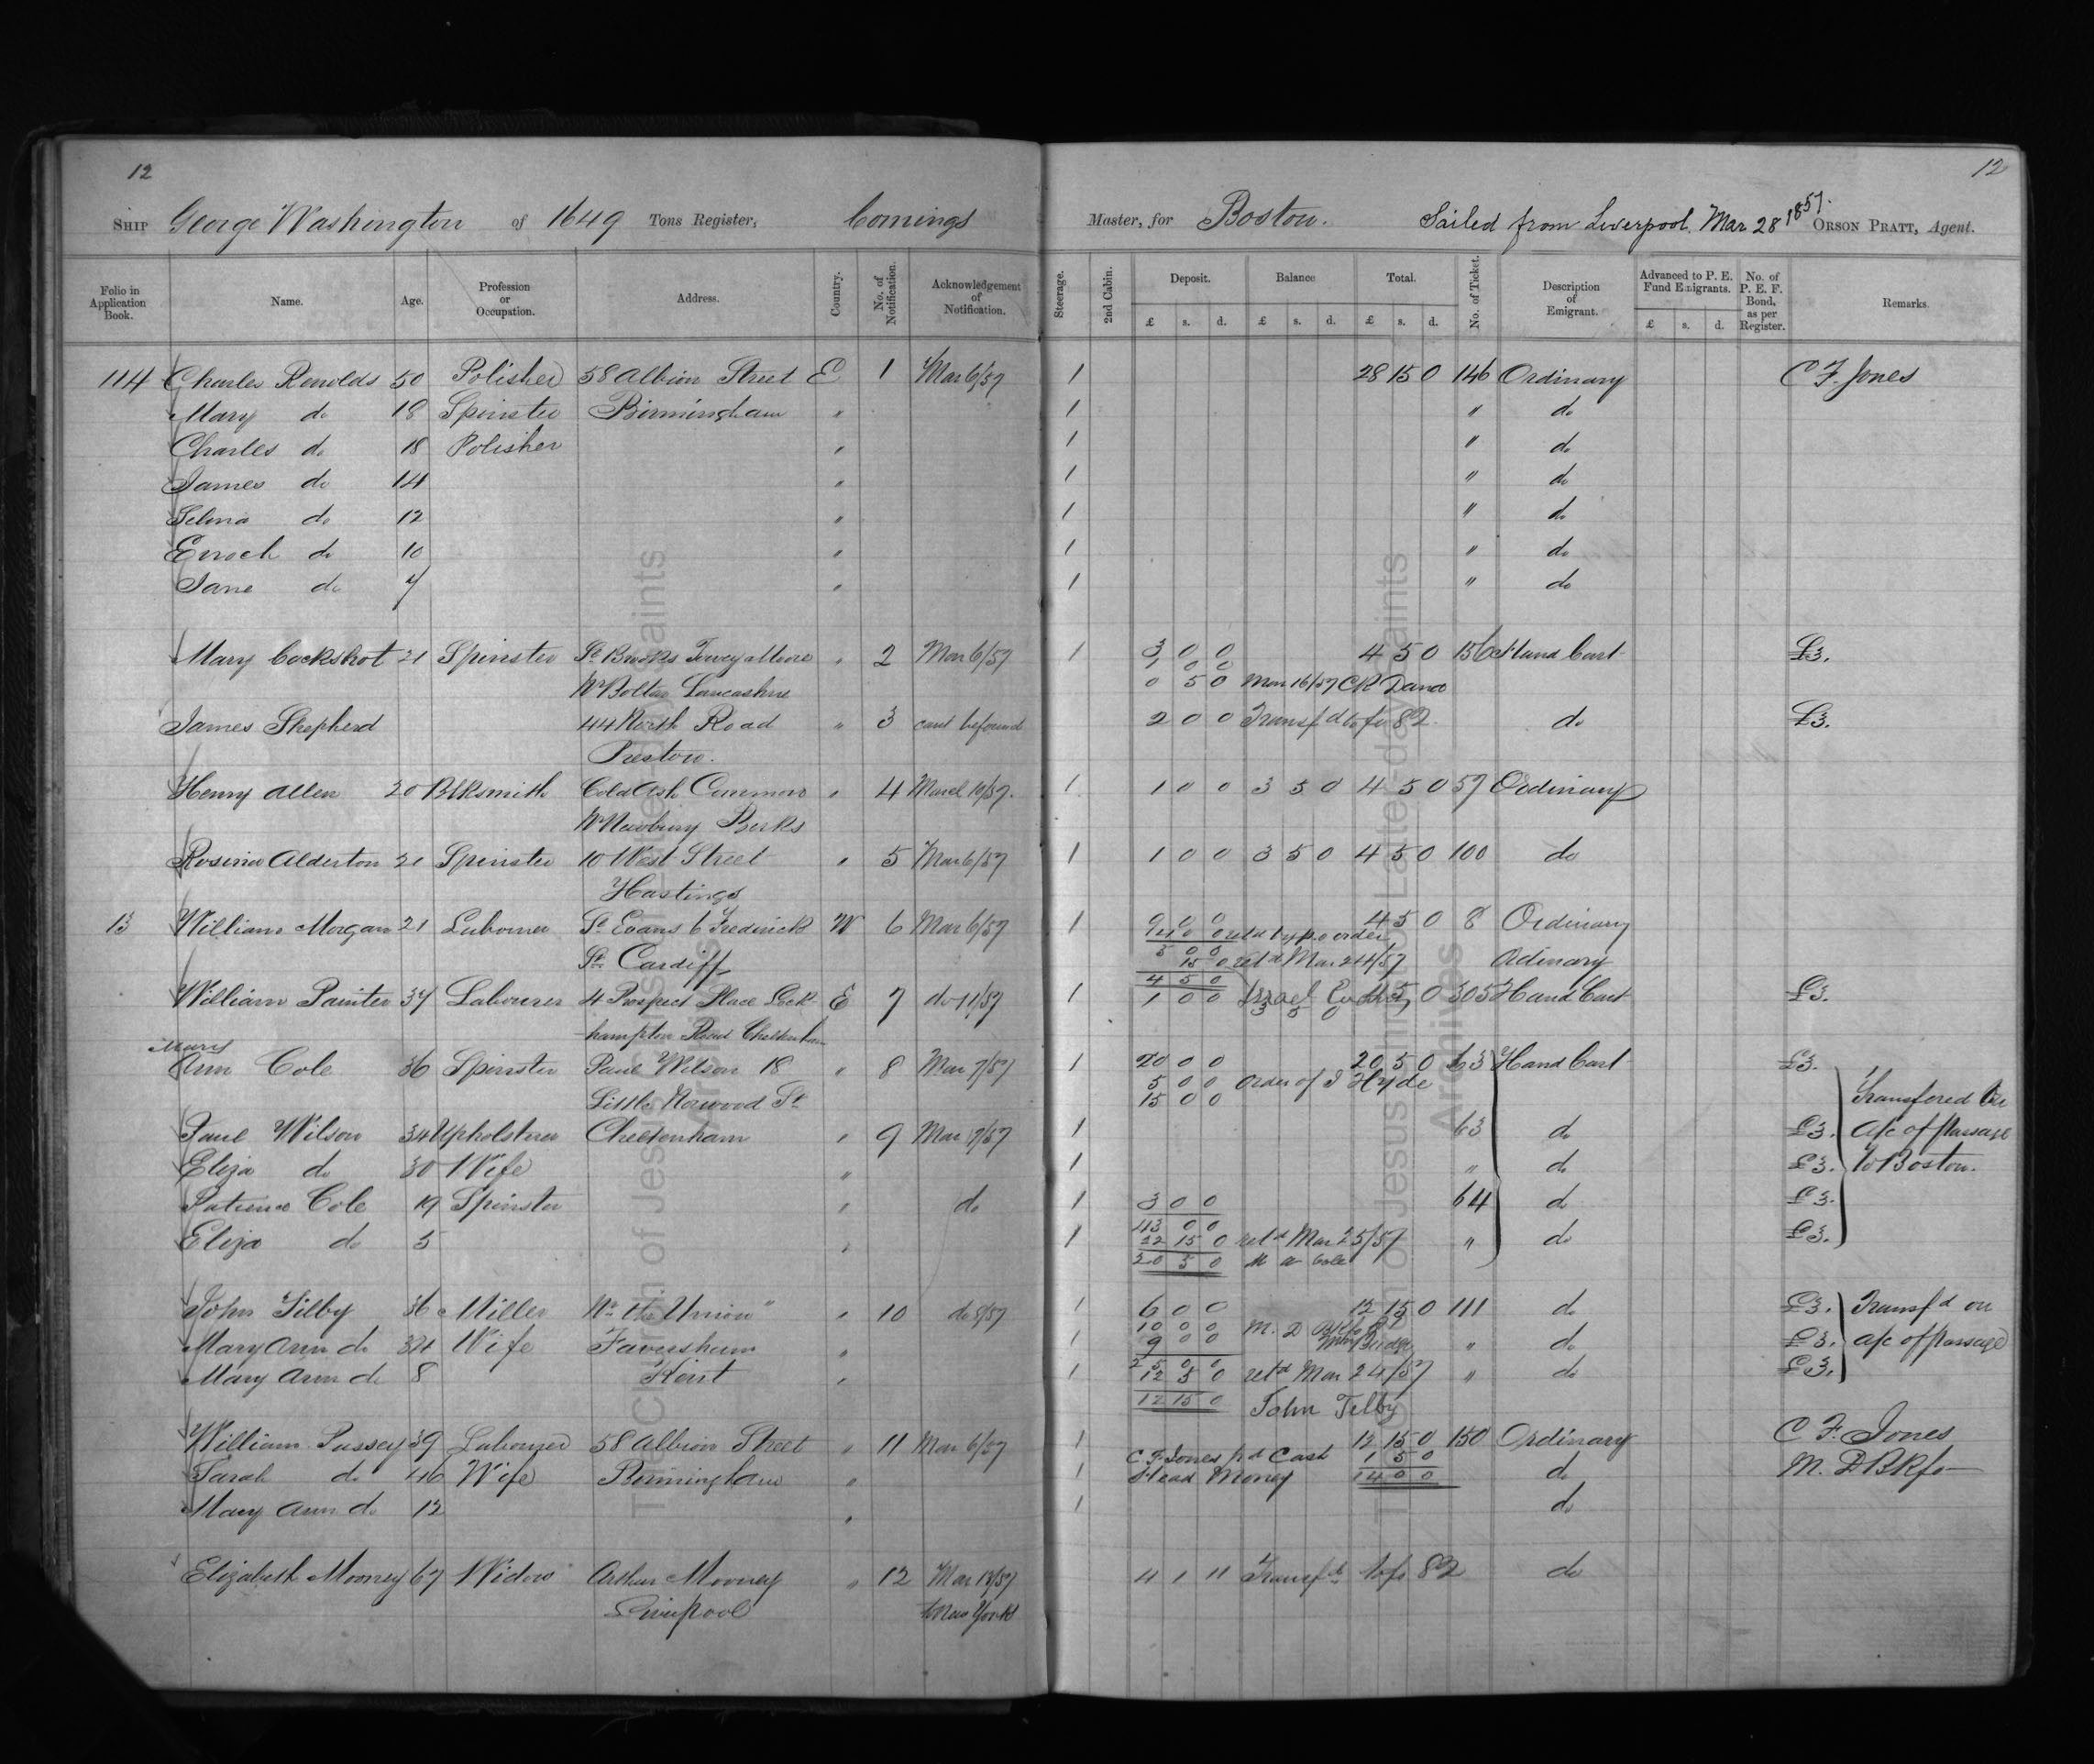 12
12
SHIP George Washington of 1649 Tons Register, Comings Master, for Boston. Sailed from Liverpool. Mar 28 1857. ORSON PRATT, Agent.
Folio in Application Book. Name. Age. Profession or Occupation. Address. Country. No. of Notification. Acknowledgement of Notification. Steerage. 2nd Cabin. Deposit. Balance Total. No. of Ticket. Description of Emigrant. Advanced to P. E. Fund Emigrants. No. of P. E. F. Bond, as per Register. Remarks.
£ s. d. £ s. d. £ s. d. £ s. d.
114 Charles Renolds 50 Polisher 58 Albion Street E 1 Mar 6/57 1 28 15 0 146 Ordinary C F. Jones
Mary do 18 Spinster Birmingham " 1 " do
Charles do 18 Polisher " 1 " do
James do 14 " 1 " do
Selina do 12 " 1 " do
Enoch do 10 " 1 " do
Jane do 7 " 1 " do
Mary Cockshot 21 Spinster " 2 Mar 6/57 1 3 0 0 4 5 0 156 Hand Cart £3.
1 0 0
Nr Bolton Lancashire 0 5 0 Mar 16/57 C R Dana
James Shepherd 44 North Road " 3 cant be found 2 0 0 Transfd to fo 82 do £3.
Preston.
Henry Allen 20 Blksmith Cold Ash " 4 March 10/57. 1 1 0 0 3 5 0 4 5 0 57 Ordinary
Nr Newbury Berks
Rosina Alderton 21 Spinster 10 West Street " 5 Mar 6/57 1 1 0 0 3 5 0 4 5 0 100 do
Hastings
13 William Morgan 21 Labourer Evans 6 Frederick W 6 Mar 6/57 1 9 0 0 4 5 0 8 Ordinary
4 0 0 retd by p.o order
St Cardiff 5 0 0
15 0 retd Mar 24/57 Ordinary
4 5 0
William Painter 37 Labourer 4 Prospect Place Leck- E 7 do 11/57 1 1 0 0 Israel 4 5 0 305 Hand Cart £3.
3 5 0
hampton Road Cheltenham
Mary
Ann Cole 36 Spinster Paul Wilson 18 " 8 Mar 7/57 1 20 0 0 20 5 0 63 Hand Cart £3.
5 0 0 Order of Hyde
Little Norwood St 15 0 0 Transfered on
Paul Wilson 34 Upholsterer Cheltenham " 9 Mar 7/57 1 63 do £3. a/c of passage
Eliza do 30 Wife " 1 " do £3. to Boston.
Patience Cole 19 Spinster " do 1 3 0 0 64 do £3.
43 0 0
Eliza do 5 " 1 22 15 0 retd Mar 25/57 " do £3.
20 5 0 M A Cole
John Tilby 36 Miller Nr the "Union" " 10 do 8/57 1 6 0 0 12 15 0 111 do £3. Transfd on
10 0 0 M. D
Mary Ann do 34 Wife Faversham " 1 9 0 0 " do £3. a/c of passage
25 0 0
Mary Ann do 8 Kent " 1 12 5 0 retd Mar 24/57 " do £3.
12 15 0 John Tilby
William Pussey 39 Labourer 58 Albion Street " 11 Mar 6/57 1 12 15 0 150 Ordinary C F. Jones
C. F. Jones pd Cash 1 5 0
Sarah do 46 Wife Birmingham " 1 Head Money 14 0 0 do M. D
Mary Ann do 12 " 1 do
Elizabeth Mooney 67 Widow Arthur Mooney " 12 Mar 13/57 4 1 11 Transfd to fo 82 do
Liverpool to New York
The Church of Jesus Christ of Latter-day Saints
Archives